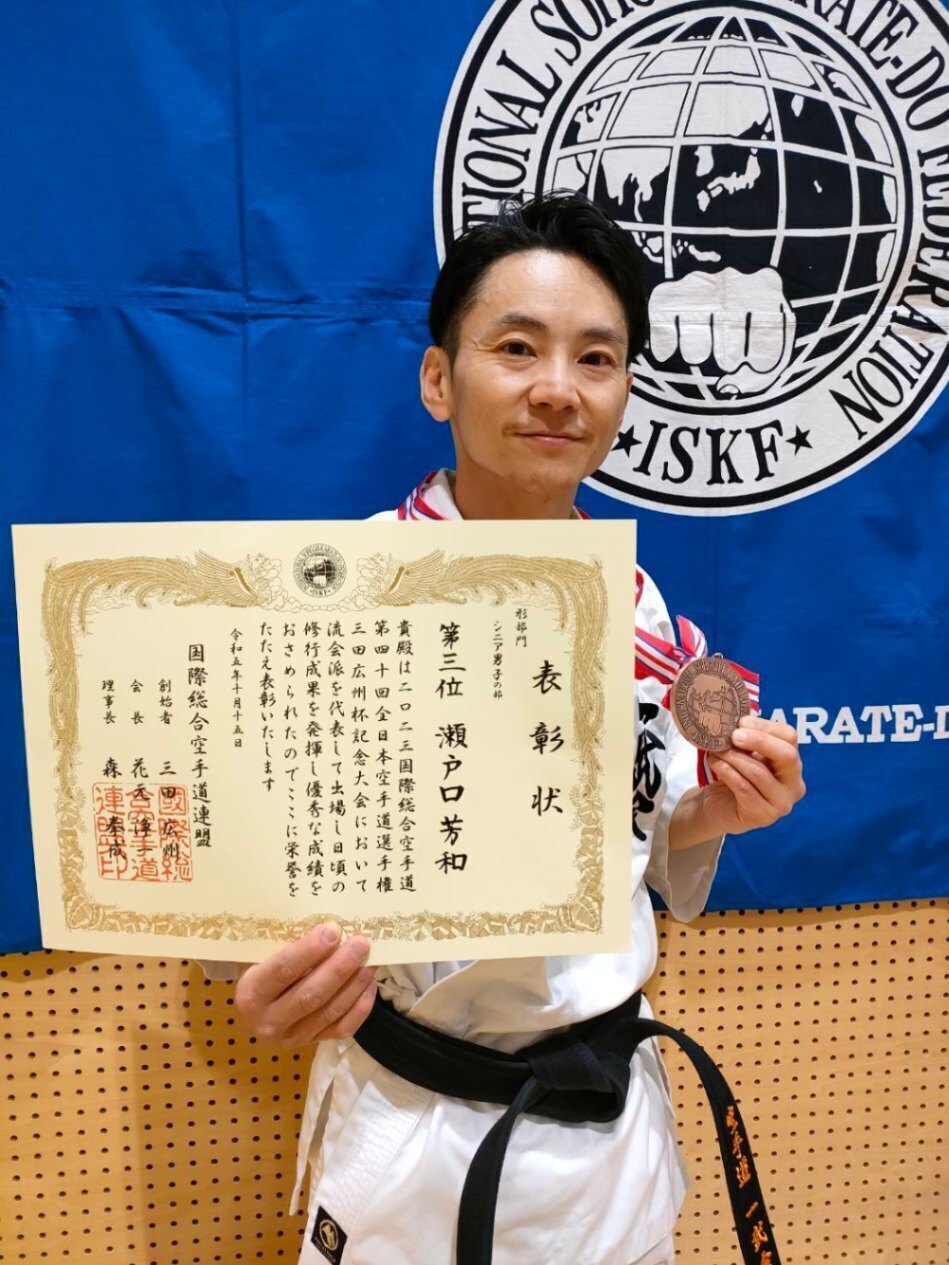 NATIONAL SOHGOH KARATE-DO FEDERATION
★ISKF★
KARATE-D
表彰状
形部門
シニア男子の部
第三位 瀬戸口芳和
貴殿は二〇二三国際総合空手道
第四十回全日本空手道選手権
三田広州杯記念大会において
流会派を代表して出場し日頃の
修行成果を発揮し優秀な成績を
おさめられたのでここに栄誉を
たたえ表彰いたします
令和五年十月十五日
国際総合空手道連盟
創始者 三田広州
会長 花
理事長 森 奉成
國際総
合空手道
連盟印
ISKF
空手道 一武